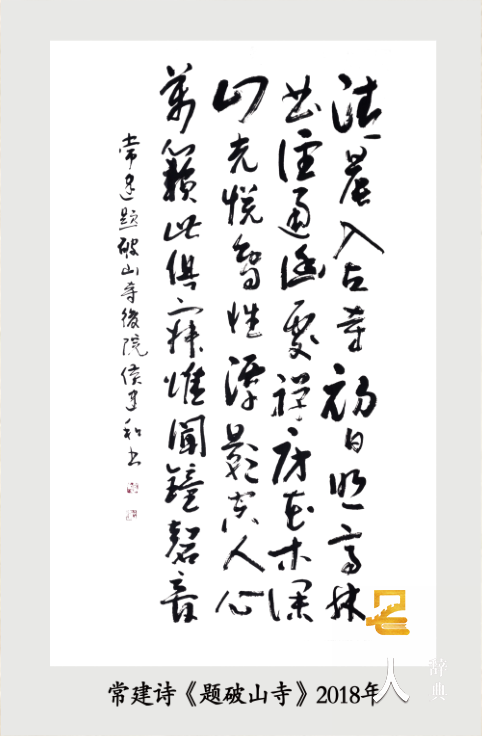 清晨入古寺初日照高林
曲徑通幽處禪房花木深
山光悦鳥性潭影空人心
萬籟此俱寂惟聞鐘磬音
常建题破山寺後院侯建和书
常建诗《题破山寺》2018年
人
辞典